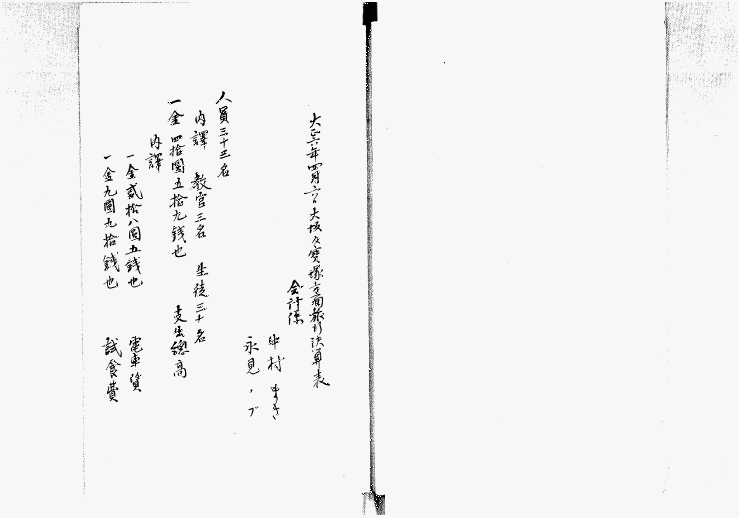 大正六年四月六日大坂及寳塚方面旅行決算表
会計係
中村 まき
永見 ノブ
人員三十三名
内譯 教官三名 生徒三十名
一金四拾圓五拾九銭也 支出總高
内譯
一金貳拾八圓五銭也 電車賃
一金九圓九拾銭也 試食費